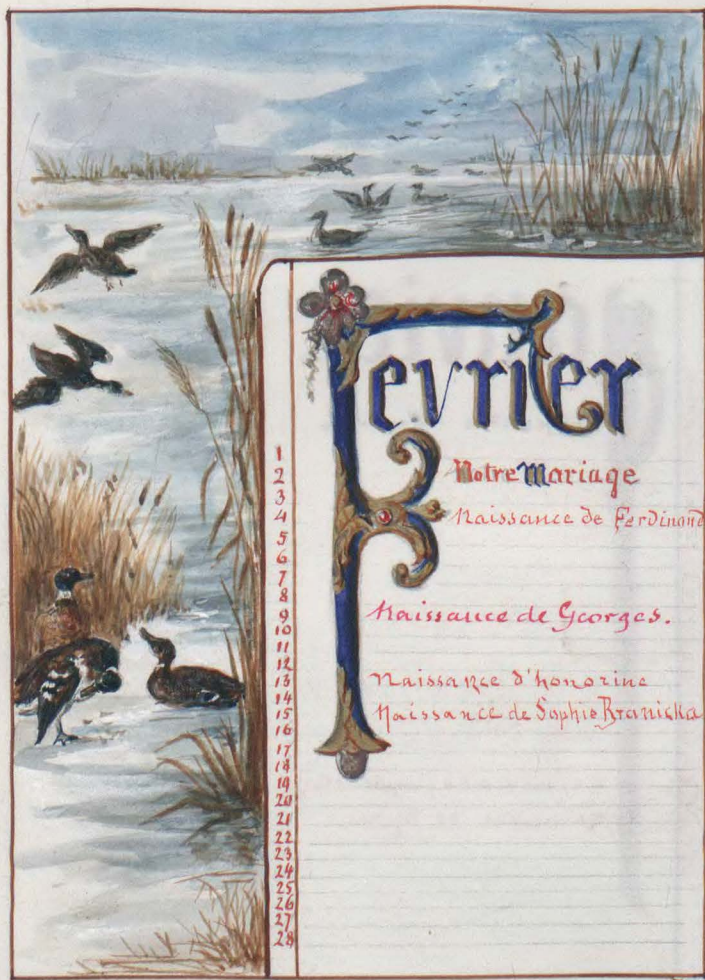 Fevrier
1
2 Notre Mariage
3
4 Naissance de Ferdinand
5
6
7
8
9 Naissance de Georges.
10
11
12
13 Naissance d'honorine
14
15 Naissance de Sophie Branicka
16
17
18
19
20
21
22
23
24
25
26
27
28